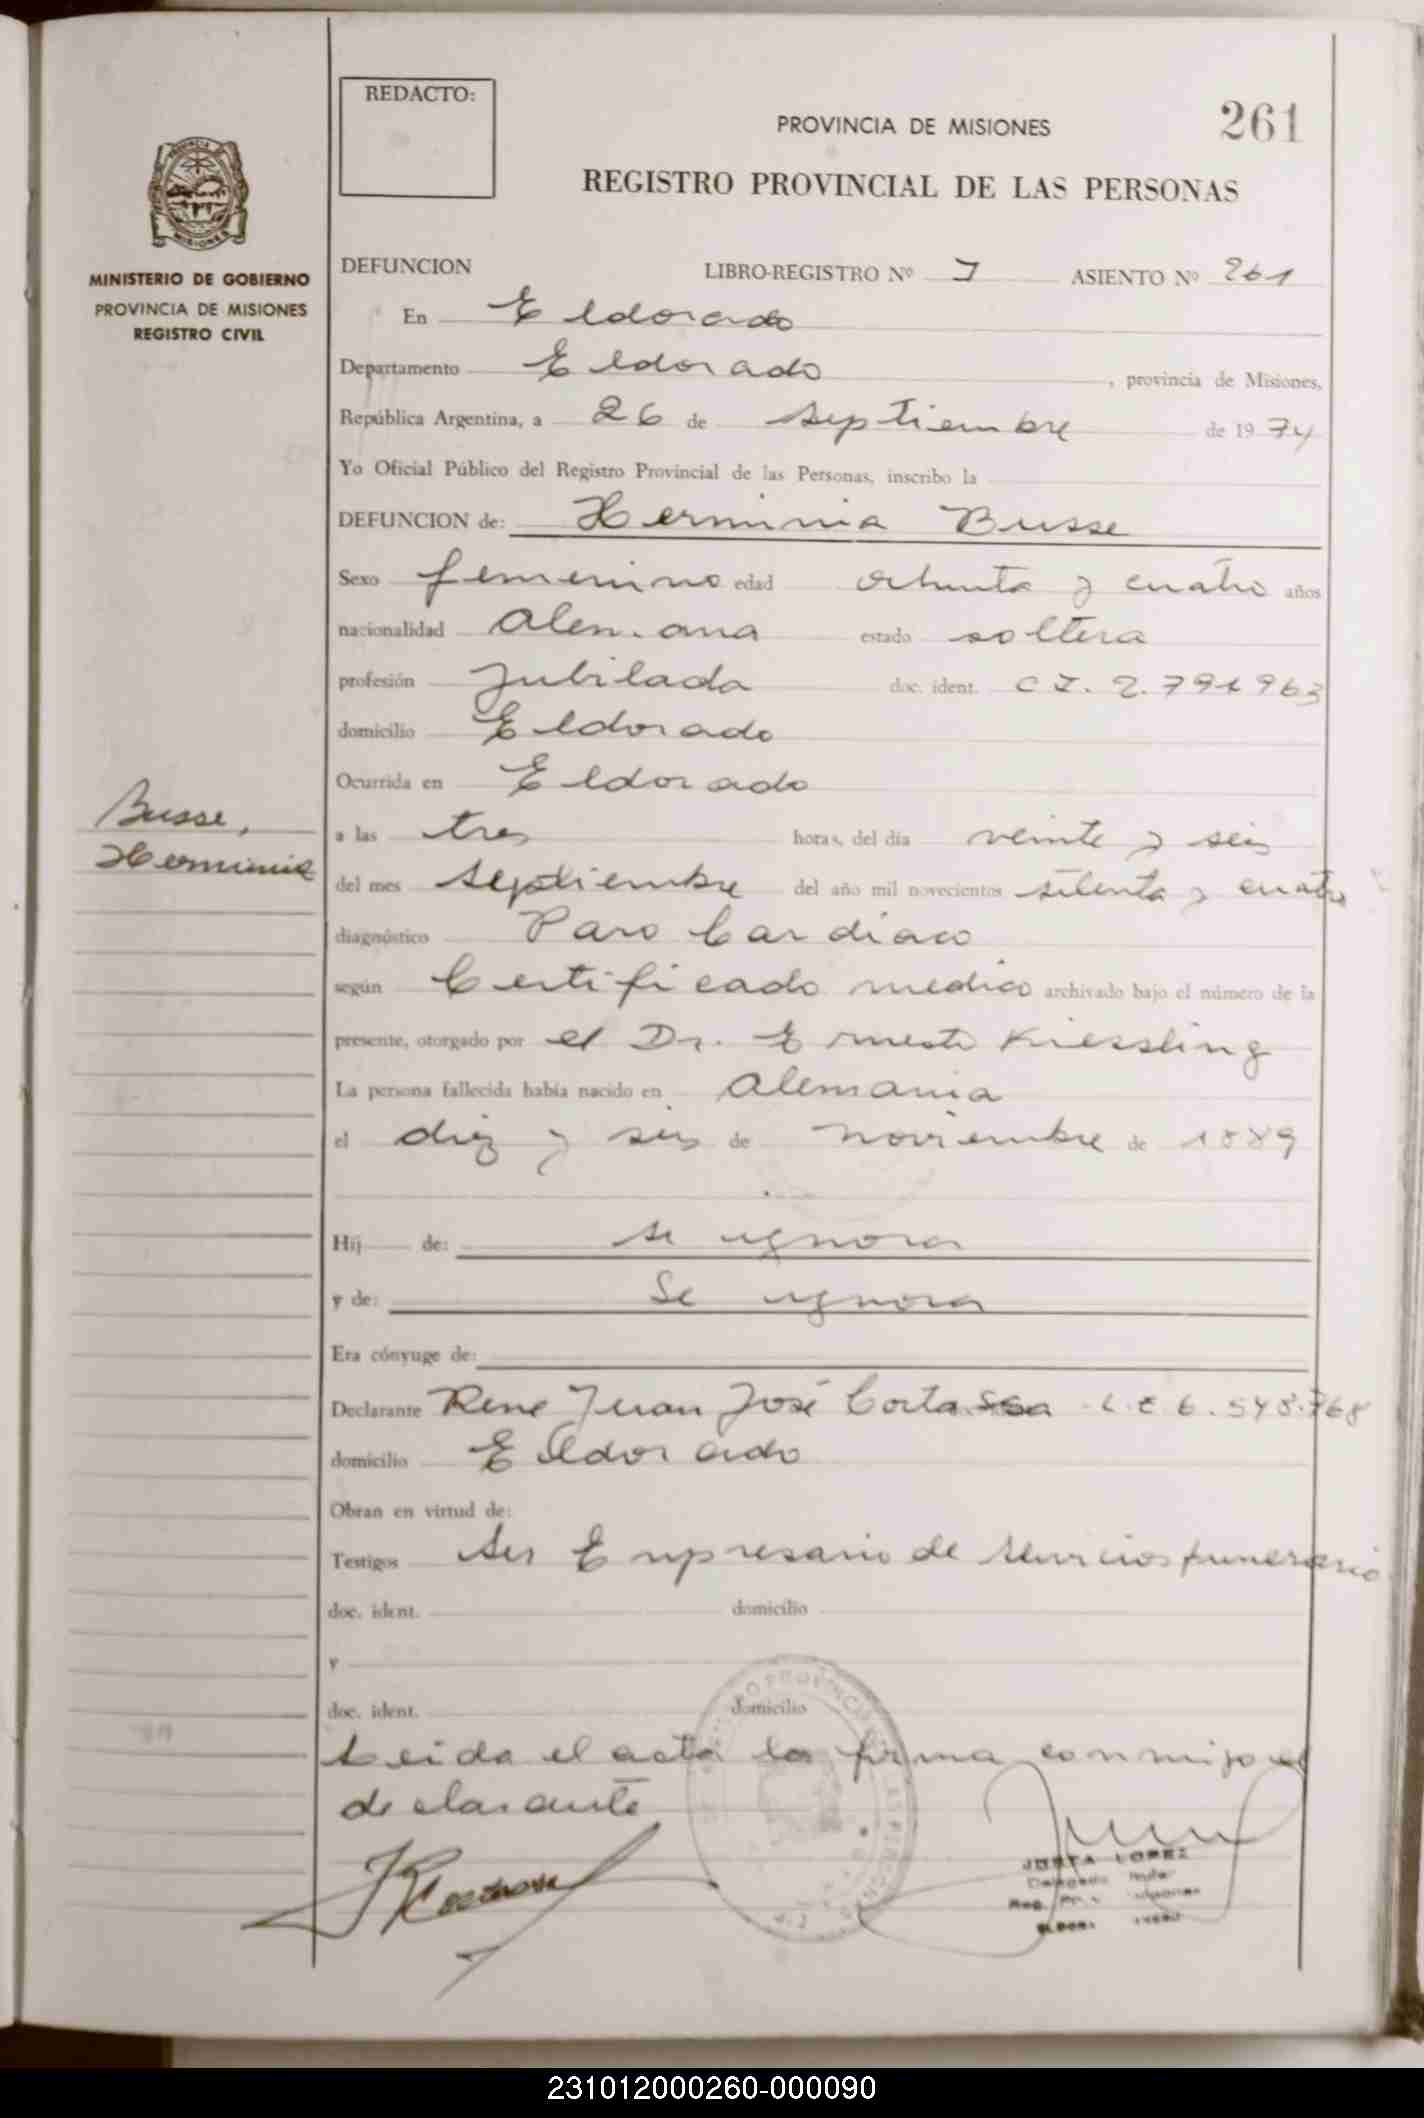 REDACTO:
PROVINCIA DE MISIONES
261
REGISTRO PROVINCIAL DE LAS PERSONAS
MISIONES
MINISTERIO DE GOBIERNO
PROVINCIA DE MISIONES
REGISTRO CIVIL
DEFUNCION LIBRO-REGISTRO Nº I ASIENTO Nº 261
En Eldorado
Departamento Eldorado, provincia de Misiones,
República Argentina, a 26 de septiembre de 1974
Yo Oficial Público del Registro Provincial de las Personas, inscribo la
DEFUNCION de: Herminia Busse
Sexo femenino edad ochenta y cuatro años
nacionalidad alemana estado soltera
profesión jubilada doc. ident. C I. 2.791963
domicilio Eldorado
Ocurrida en Eldorado
Busse,
Herminia
a las tres horas, del día veinte y seis
del mes septiembre del año mil novecientos setenta y cuatro
diagnóstico Paro Cardiaco
según Certificado medico archivado bajo el número de la
presente, otorgado por el Dr. Ernesto Kiessling
La persona fallecida había nacido en Alemania
el diez y seis de noviembre de 1889
Hij de: se ignora
y de: Se ignora
Era cónyuge de:
Declarante Rene Juan José Cortassa L.E 6.548.768
domicilio Eldorado
Obran en virtud de:
Testigos Ser Empresario de servicios funerario
doc. ident. domicilio
y
doc. ident. domicilio
Leida el acta la firma conmigo el
declarante
LOPEZ
231012000260-000090